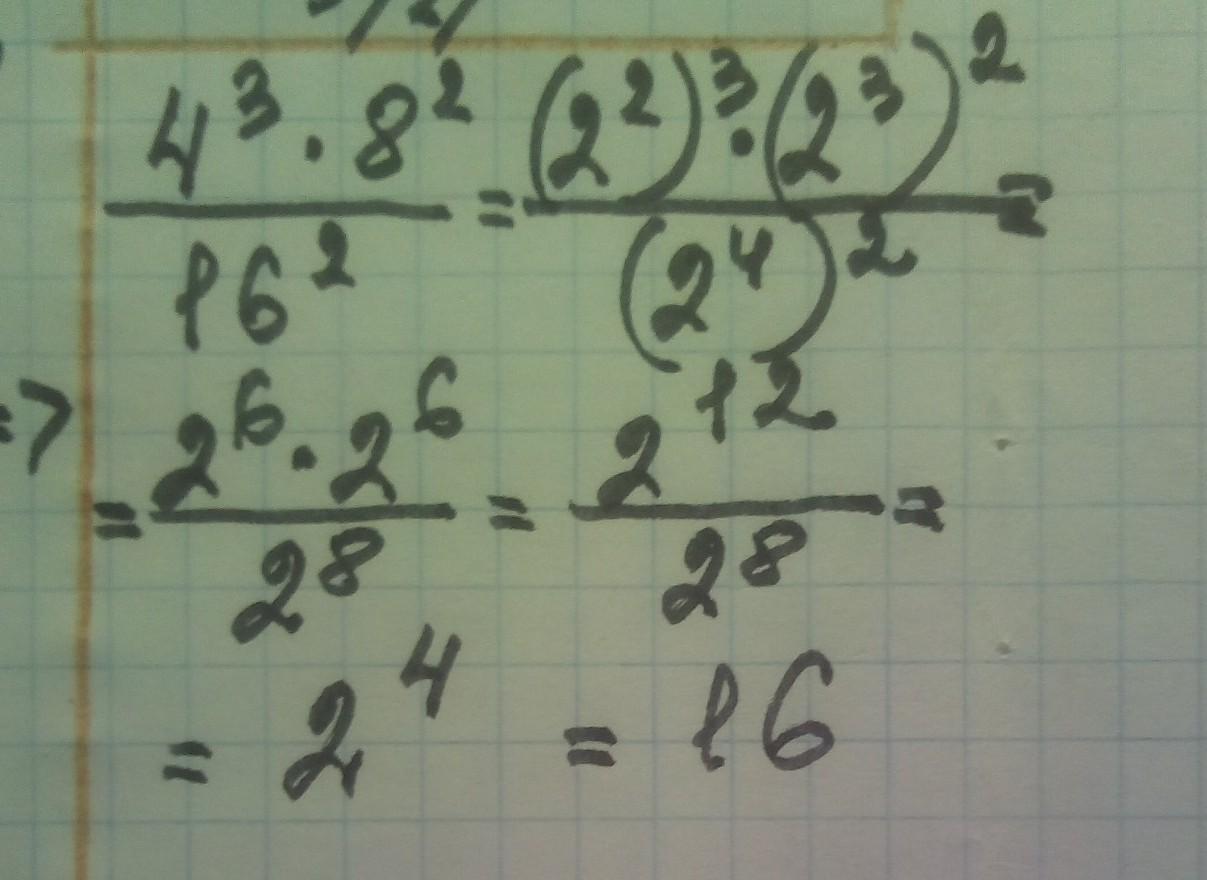 4³ · 8² / 16² = (2²)³ · (2³)² / (2⁴)² =
= 2⁶ · 2⁶ / 2⁸ = 2¹² / 2⁸ =
= 2⁴ = 16